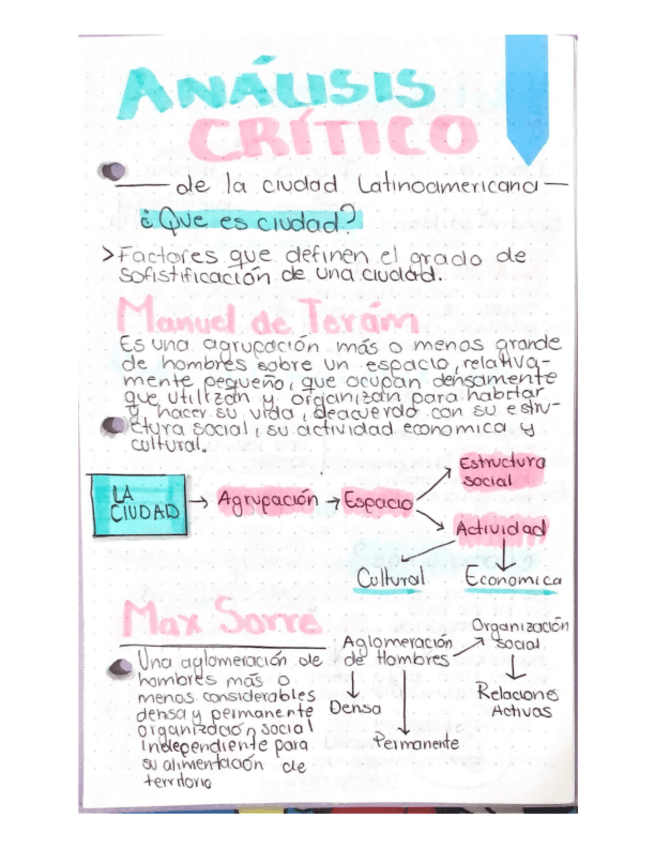 ANÁLISIS
CRÍTICO
de la ciudad Latinoamericana
¿Que es ciudad?
> Factores que definen el grado de
sofistificación de una ciudad.
Manuel de Terám
Es una agrupación más o menos grande
de hombres sobre un espacio, relativa-
mente pequeño, que ocupan densamente
que utilizan y organizan para habitar
y hacer su vida, deacuerdo con su estru-
ctura social, su actividad economica y
cultural.
LA
CIUDAD
Agrupación
Espacio
Estructura
social
Actividad
Cultural
Economica
Max Sorre
Una aglomeración de
hombres más o
menos considerables
densa y permanente
organización social
independiente para
su alimentación de
territorio
Aglomeración
de Hombres
Densa
Permanente
Organización
social
Relaciones
Activas